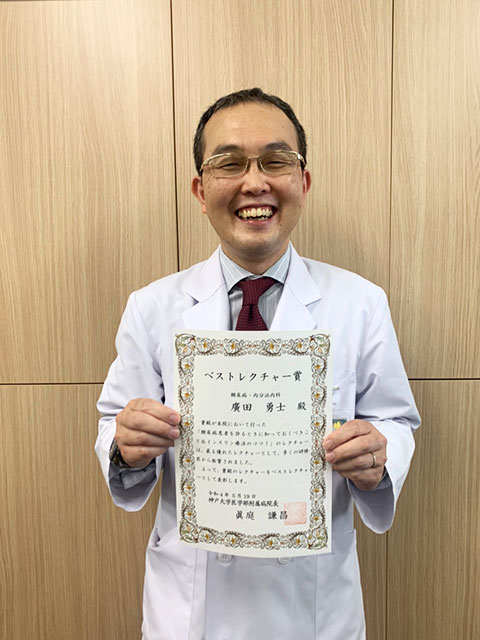 ベストレクチャー賞
糖尿病・内分泌内科
廣田 勇士 殿
貴殿が本院において行った
「糖尿病患者を診るときに知っておくべきこ
と&インスリン療法のコツ!」のレクチャー
は、最も優れたレクチャーとして、多くの研修
医から称賛されました。
よって、貴殿のレクチャーをベストレクチ
ャーとして表彰します。
令和4年5月19日
神戸大学医学部附属病院長
眞庭 謙昌